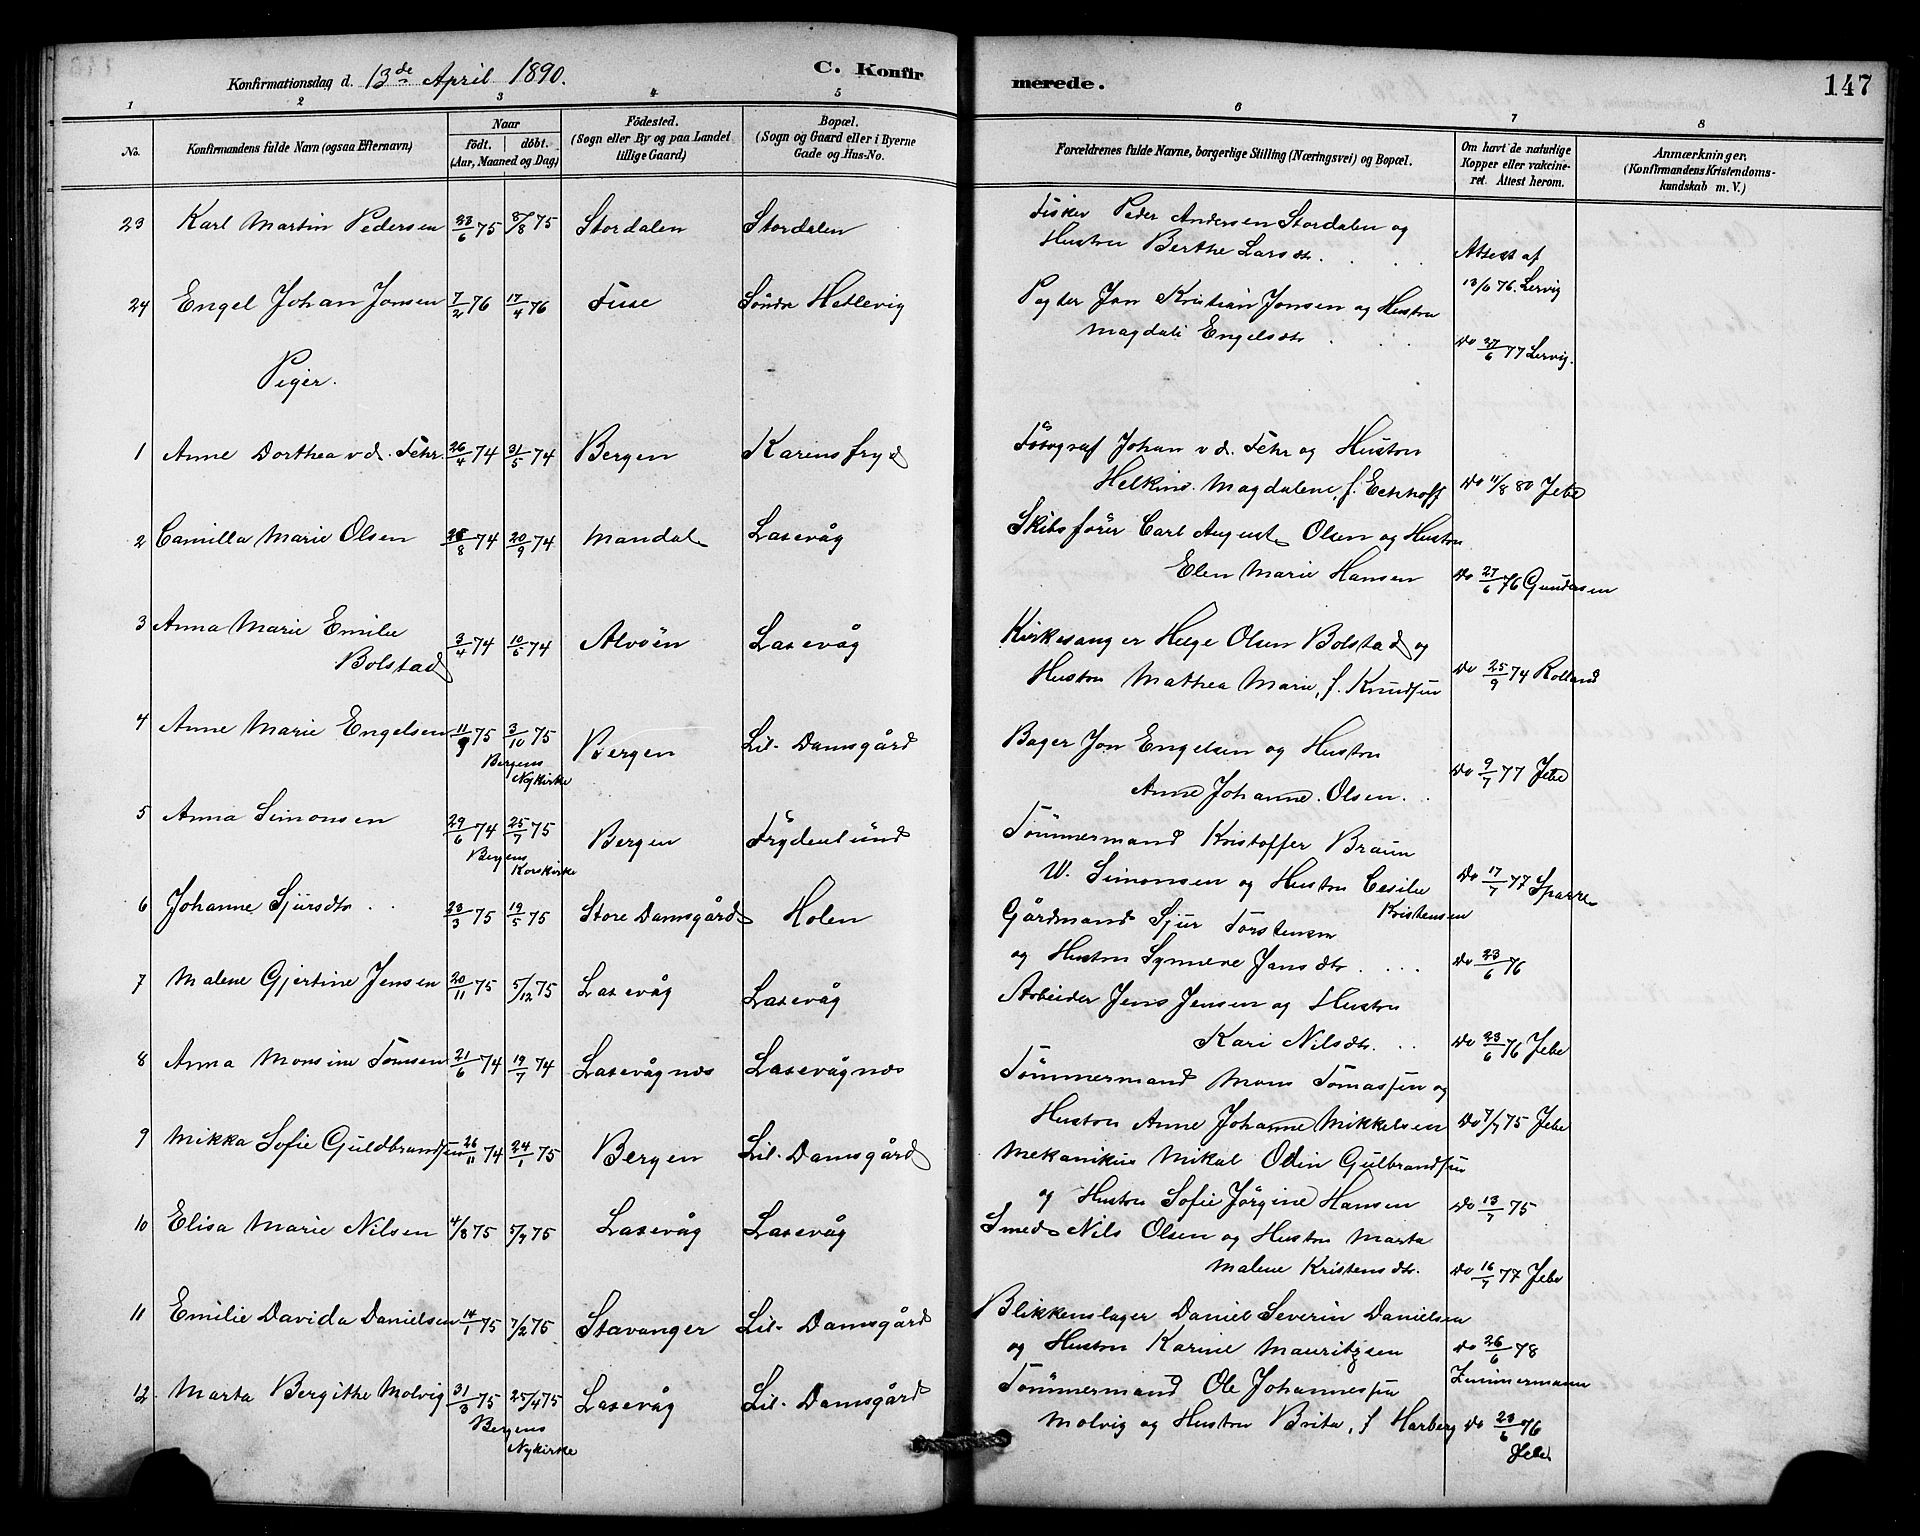 Konfirmationsdag d. 13de April 1890.
C. Konfir
merede.
147
1 2 3 4 5 6 7 8
No.
Konfirmandens fulde Navn (ogsaa Efternavn)
Naar
født. døbt.
(Aar, Maaned og Dag)
Fødested.
(Sogn eller By og paa Landet
tillige Gaard)
Bopæl.
(Sogn og Gaard eller i Byerne
Gade og Hus-No.
Forældrenes fulde Navne, borgerlige Stilling (Næringsvei) og Bopæl.
Om havt de naturlige
Kopper eller vakcine-
ret. Attest herom.
Anmærkninger.
(Konfirmandens Kristendoms-
kundskab m. V.)
23 Karl Martin Pedersen 23/6 75 8/8 75 Stordalen Stordalen
Fisker Peder Andersen Stordalen og
Hustru Berthe Larsdtr. Attest af
13/6 76. Lervig
24 Engel Johan Jonsen 7/2 76 17/4 76 Fuse Söndre Hetlevig
Pagter Jon Kristian Jonsen og Hustru
Magdali Engelsdtr Do 27/6 77 Lervig.
Piger.
1 Anne Dorthea v d. Fehr. 26/4 74 31/5 74 Bergen Karensfryd
Fotograf Johan v d. Fehr og Hustru
Helkine Magdalene, f. Eckhoff Do 11/8 80 Jebe
2 Camilla Marie Olsen 28/8 74 20/9 74 Mandal Laxevåg
Skibsförer Carl August Olsen og Hustru
Elen Marie Hansen Do 27/6 76 Gundersen
3 Anna Marie Emilie
Bolstad 3/4 74 10/6 74 Alvöen Laxevåg
Kirkesanger Helge Olsen Bolstad og
Hustru Mathea Marie, f. Knudsen Do 25/9 74 Rolland
4 Anne Marie Engelsen 11/9 75 3/10 75 Bergen Lil. Damsgård
Bergens
Nykirke
Bager Jon Engelsen og Hustru
Anne Johanne Olsen. Do 9/7 77 Jebe
5 Anna Simonsen 29/6 74 25/7 75 Bergen Frydenlund
Bergens
Korskirke
Tömmermand Kristoffer Braun
W. Simonsen og Hustru Cesilie
Kristensen Do 17/7 77 Sparre
6 Johanne Sjursdtr 23/3 75 19/5 75 Store Damsgård Holen
Gårdmand Sjur Torstensen
og Hustru Synneve Jansdtr. Do 23/6 76
7 Malene Gjertine Jensen 20/11 75 5/12 75 Laxevåg Laxevåg
Arbeider Jens Jensen og Hustru
Kari Nilsdtr. Do 23/6 76 Jebe
8 Anna Monsine Tomsen 21/6 74 19/7 74 Laxevågnes Laxevågnes
Tömmermand Mons Tomassen og
Hustru Anne Johanne Mikkelsen Do 7/7 75 Jebe
9 Mikka Sofie Guldbrandsen 26/11 74 24/1 75 Bergen Lil. Damsgård
Mekanikus Mikal Odin Gulbrandsen
og Hustru Sofie Jörgine Hansen Do 13/7 75
10 Elisa Marie Nilsen 4/8 75 5/9 75 Laxevåg Laxevåg
Smed Nils Olsen og Hustru Marta
Malene Kristensdtr. Do 16/7 77 Jebe
11 Emilie Davida Danielsen 14/1 75 7/2 75. Stavanger Lil. Damsgård
Blikkenslager Daniel Severin Danielsen
og Hustru Karine Mauritzsen Do 26/6 78
Zimmermann
12 Marta Bergithe Molvig 31/3 75 25/4 75 Laxevåg Lil. Damsgård
Bergens
Nykirke
Tömmermand Ole Johannessen
Molvig og Hustru Brita, f Harberg Do 23/6 76
Jebe